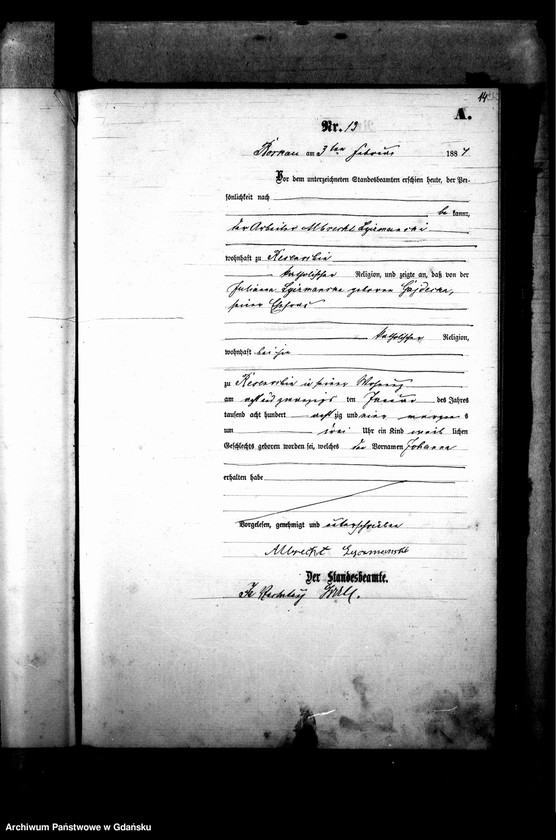 14
A.
Nr. 13
am 3ten Februar 1884
Vor dem unterzeichneten Standesbeamten erschien heute, der Per-
sönlichkeit nach
be kannt,
der Arbeiter Albrecht
wohnhaft zu
katholischer Religion, und zeigte an, daß von der
Julianna geborene
seiner Ehefrau
katholischer Religion,
wohnhaft bei ihm
zu in seiner Wohnung
am acht und zwanzigs ten Januar des Jahres
tausend acht hundert acht zig und vier morgen s
um drei Uhr ein Kind weib lichen
Geschlechts geboren worden sei, welches den Vornamen Johanna
erhalten habe
Vorgelesen, genehmigt und unterschrieben
Albrecht
Der Standesbeamte.
Archiwum Państwowe w Gdańsku